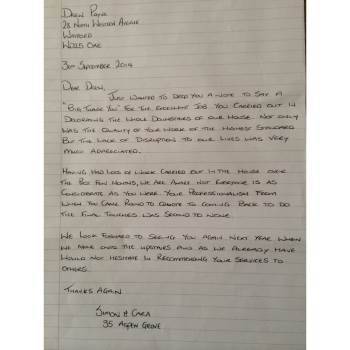 Drew Payne
28 North Western Avenue
Watford
WD25 0AE
30th September 2014
Dear Drew,
Just wanted to drop you a note to say a
"Big Thank You" for the excellent job you carried out in
decorating the whole downstairs of our house. Not only
was the quality of your work of the highest standard
but the lack of disruption to our lives was very
much appreciated.
Having had lots of work carried out in the house over
the past few months, we are aware not everyone is as
considerate as you were. Your professionalism from
when you came round to quote to coming back to do
the final touches was second to none.
We look forward to seeing you again next year when
we move onto the upstairs and as we already have
would not hesitate in recommending your services to
others.
Thanks again
Simon & Cara
35 Aspen Grove